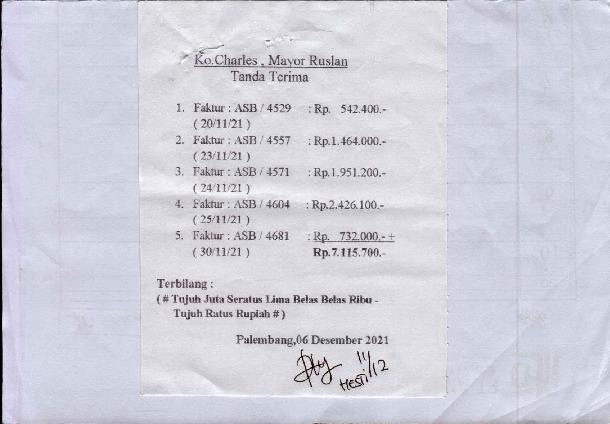 Ko.Charles , Mayor Ruslan
Tanda Terima
1. Faktur : ASB / 4529 : Rp. 542.400.-
( 20/11/21 )
2. Faktur : ASB / 4557 : Rp.1.464.000.-
( 23/11/21 )
3. Faktur : ASB / 4571 : Rp.1.951.200.-
( 24/11/21 )
4. Faktur : ASB / 4604 : Rp.2.426.100.-
( 25/11/21 )
5. Faktur : ASB / 4681 : Rp. 732.000.- +
( 30/11/21 ) Rp.7.115.700.-
Terbilang :
( # Tujuh Juta Seratus Lima Belas Belas Ribu -
Tujuh Ratus Rupiah # )
Palembang,06 Desember 2021
Hesti